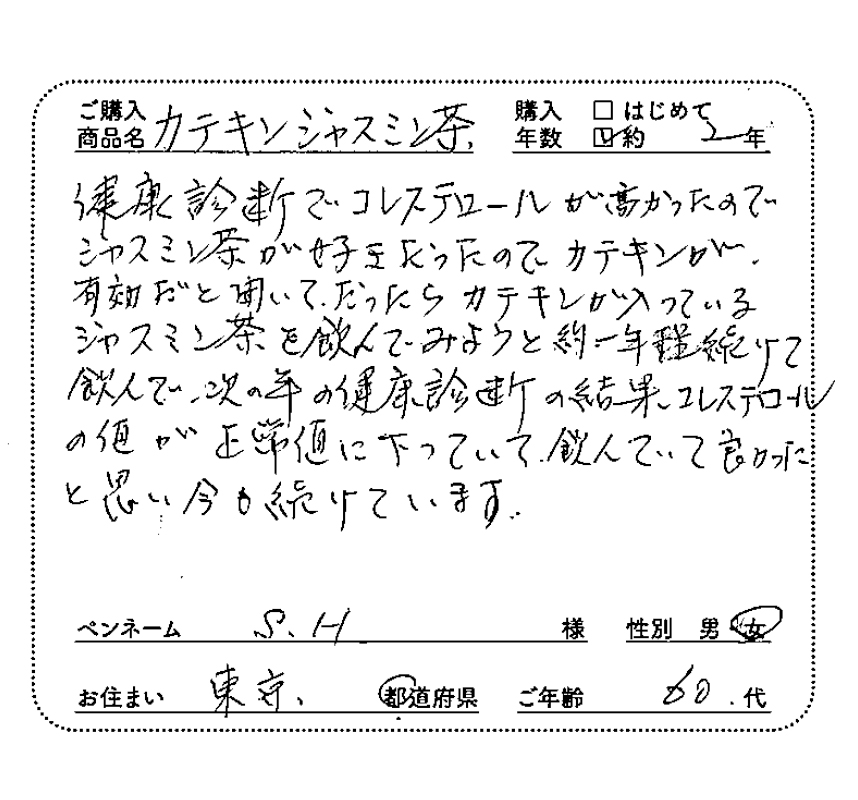 ご購入商品名 カテキンジャスミン茶、 購入年数 □はじめて ☑約 2 年
健康診断でコレステロールが高かったので
ジャスミン茶が好きだったので、カテキンが、
有効だと聞いて、だったらカテキンが入っている
ジャスミン茶を飲んでみようと約一年程続けて
飲んで、次の年の健康診断の結果、コレステロール
の値が正常値に下っていて、飲んでいて良かった
と思い今も続けています。
ペンネーム S.H 様 性別 男 女
お住まい 東京、 都道府県 ご年齢 60.代